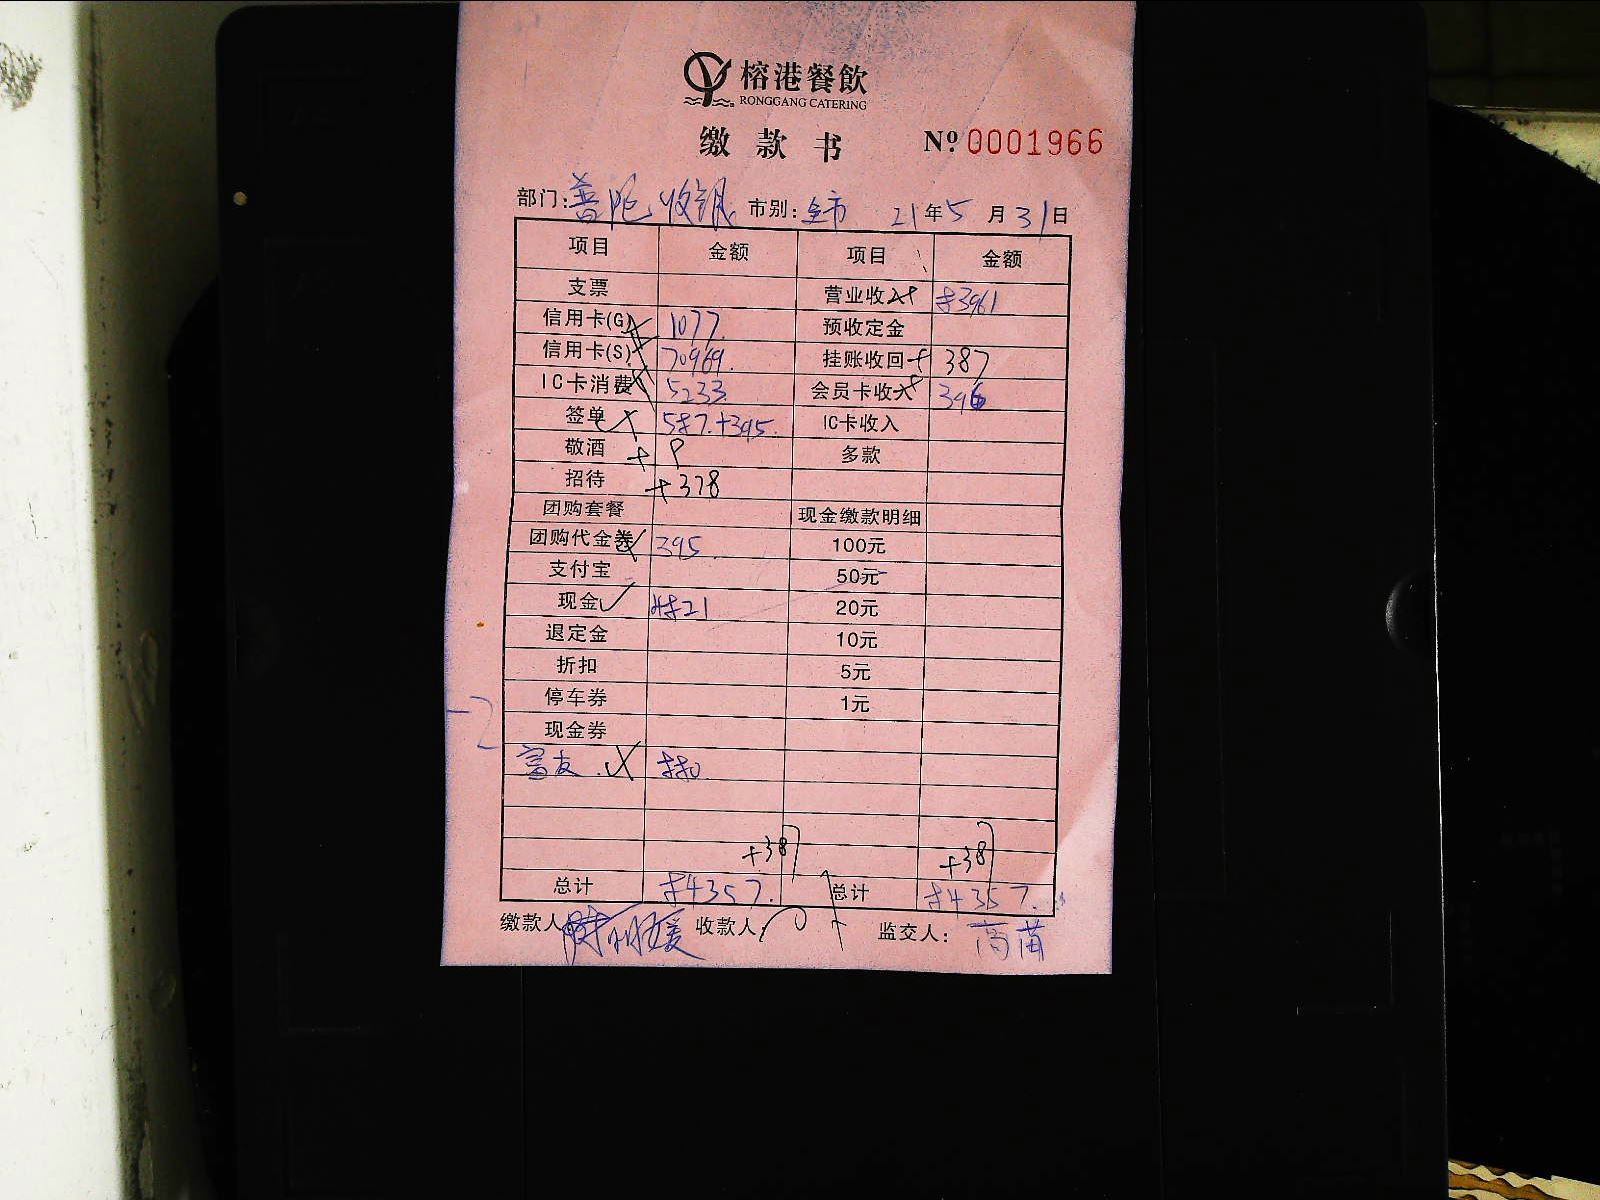 榕港餐飲
RONGGANG CATERING
缴款书 Nº 0001966
部门: 普陀收银 市别: 全市 21年5月31日
项目 金额 项目 金额
支票 营业收入
信用卡(G) 1077. 预收定金
信用卡(S) 70969. 挂账收回+ 387
IC卡消费 5233 会员卡收入 396
签单 IC卡收入
敬酒 多款
招待 +378
团购套餐 现金缴款明细
团购代金券 395. 100元
支付宝 50元
现金 20元
退定金 10元
折扣 5元
停车券 1元
现金券
富友
+387 +387
总计 总计
缴款人 收款人: 监交人: 高苗